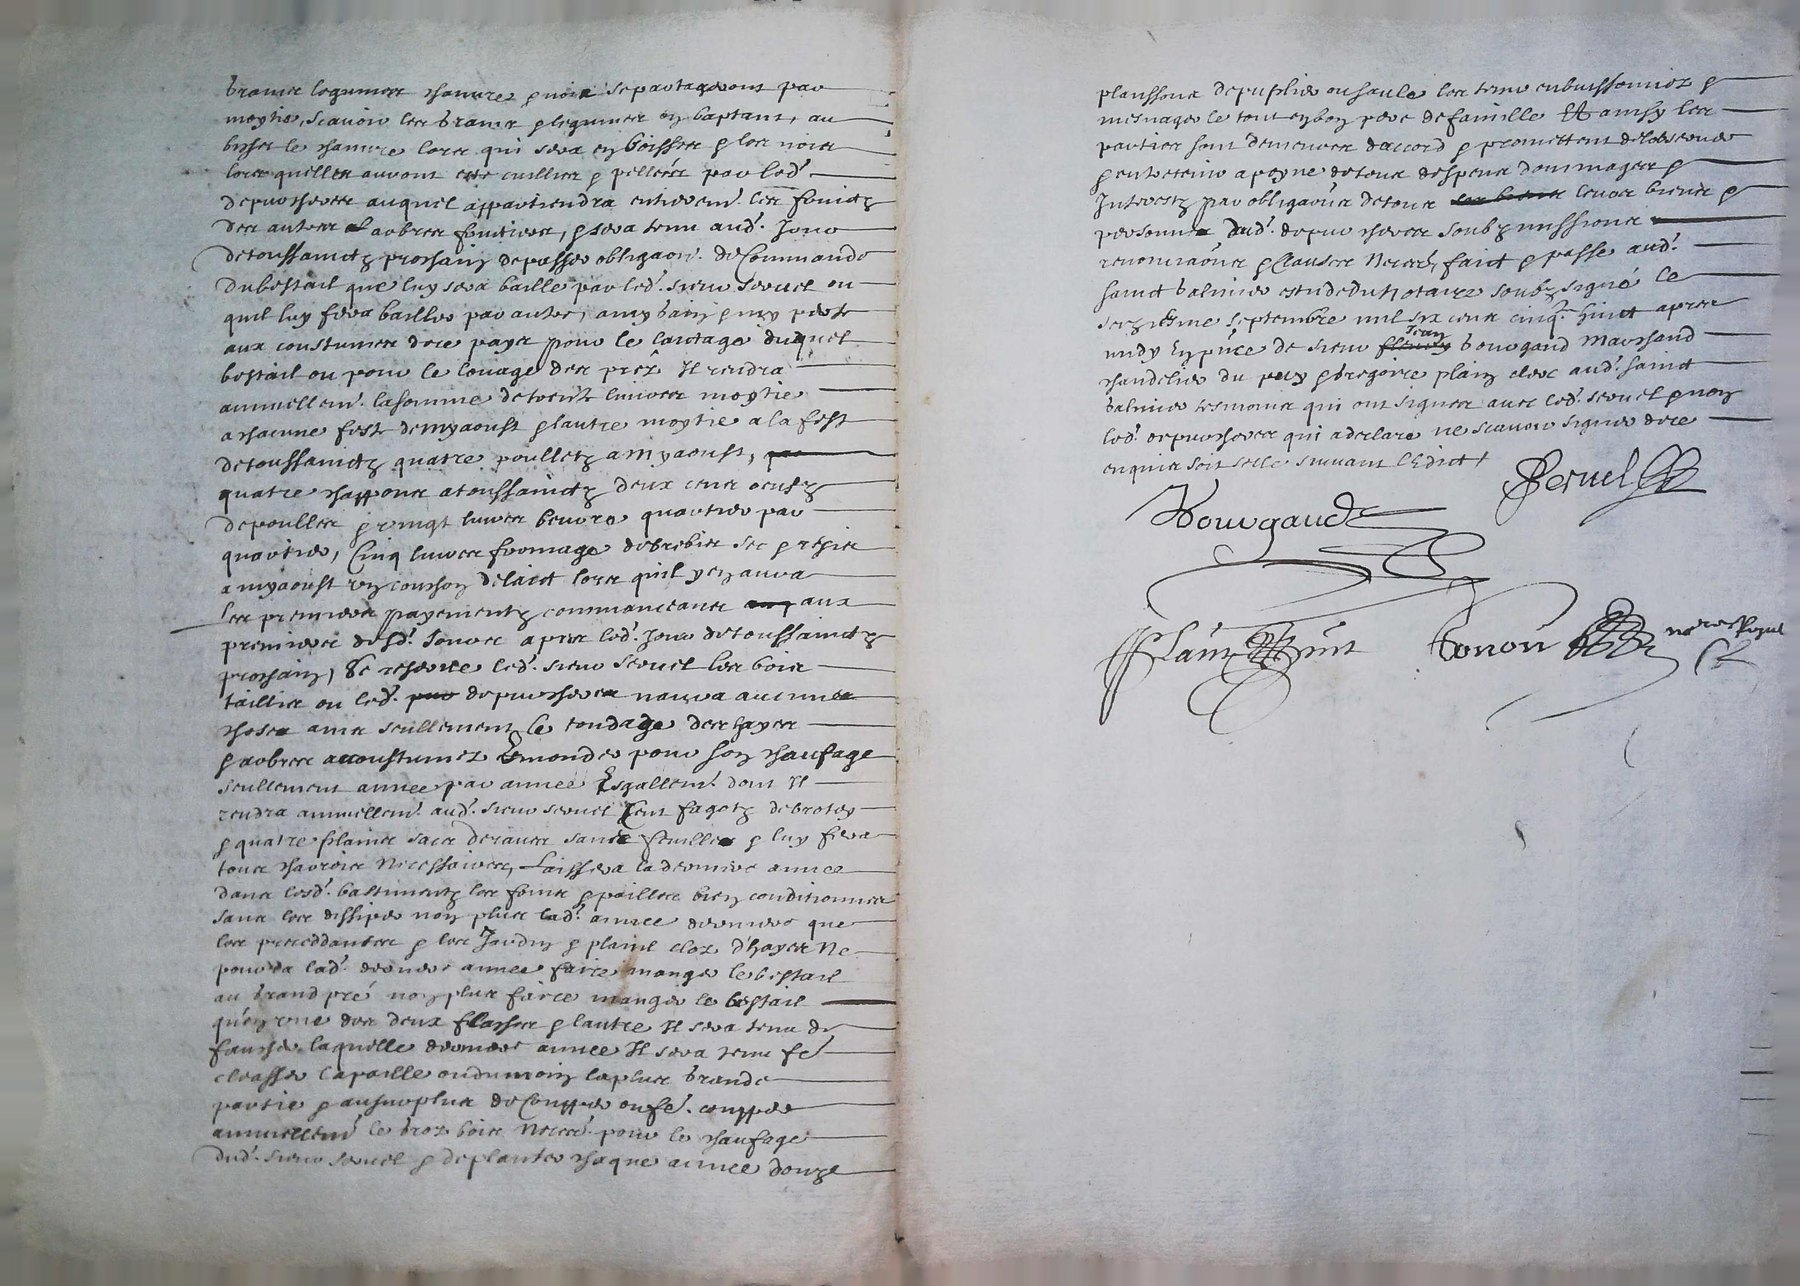 grains legumes chanvre & noix se partageront par
moytie, scavoir les grains & legumes en baptant, au
le chanvre lors qui sera en boisseu & les noix
lors quelles auront esté cuillies & pellées par led.
depuischever auquel appartiendra entierem. les fruictz
des autres arbres fruitiers, & sera tenu aud. Jour
de toussainctz prochain de passer obligaon. de Commande
du bestail que luy sera baillé par led. sieur seruel ou
quil luy fera bailler par autre, a my gain & my perte
aux coustumes de ce pays pour le laictage duquel
bestail ou pour le louage des Il rendra
annuellem. la somme de livres moytie
a chacune feste de myaoust & lautre moytie a la feste
de toussainctz quatre pouletz a myaoust,
quatre chappons a toussainctz deux cens oeufz
de poulles & vingt livres beurre quartier par
quartier, Cinq livres fromage de brebis sec &
a myaoust un de laict lors quil y en aura
les premiers payementz commanceans aux
premieres desd. Jours apres led. Jour de toussainctz
prochain, Se reserve led. sieur seruel les bois
taillis ou led. depuischever naura aucunes
choses ains seullement le tondage des hayes
& arbres accoustumez Esmonder pour son chaufage
seullement annee par annee Esgallem. dont Il
rendra annuellem. aud. sieur seruel Cent fagotz de
& quatre plains sacs de raves sans feuilles & luy fera
tous charrois Necessaires, Laissera la derniere annee
dans lesd. bastimentz les foins & pailles bien conditionnes
sans les dissiper non plus lad. annee derniere que
les precedantes & les Jardin & plain cloz d'hayes Ne
pourra lad. derniere annee faire manger le bestail
au grand pré non plus faire manger le bestail
qu'en une des deux & lautre Il sera tenu de
faucher laquelle derniere annee Il sera tenu fe.
la paille ou du moin la plus grande
partie & au surplus de Coupper ou fe. coupper
annuellem. le groz bois Necess. pour le chaufage
dud. sieur seruel & de planter chaque annee douze
planssons de puplier ou saule les tenir enbuissonnez &
mesnager le tout en bon pere de famille Et ainsy les
parties sont demeurés daccord & promettent de lobserver
& entretenir a peyne de tous despens dommages &
Interestz par obligaon de tous leurs biens &
personne dud. depuischever soubzmissions
renonciaons & clauses Necess. faict & passe aud.
sainct galmier estude du Notaire soubzsigné Le
seziesme septembre mil six cens cinq. huict apres
midy En pnce de sieur Jean bourgaud Marchand
chandelier du puy & gregoire plain clerc aud. sainct
galmier tesmoins qui ont signes avec led. seruel & non
led. depuischever qui a declaré ne scavoir signer de ce
enquis soit sellé suivant l'Edict
Seruel
Bourgaud
Plain Ronon notaire Royal